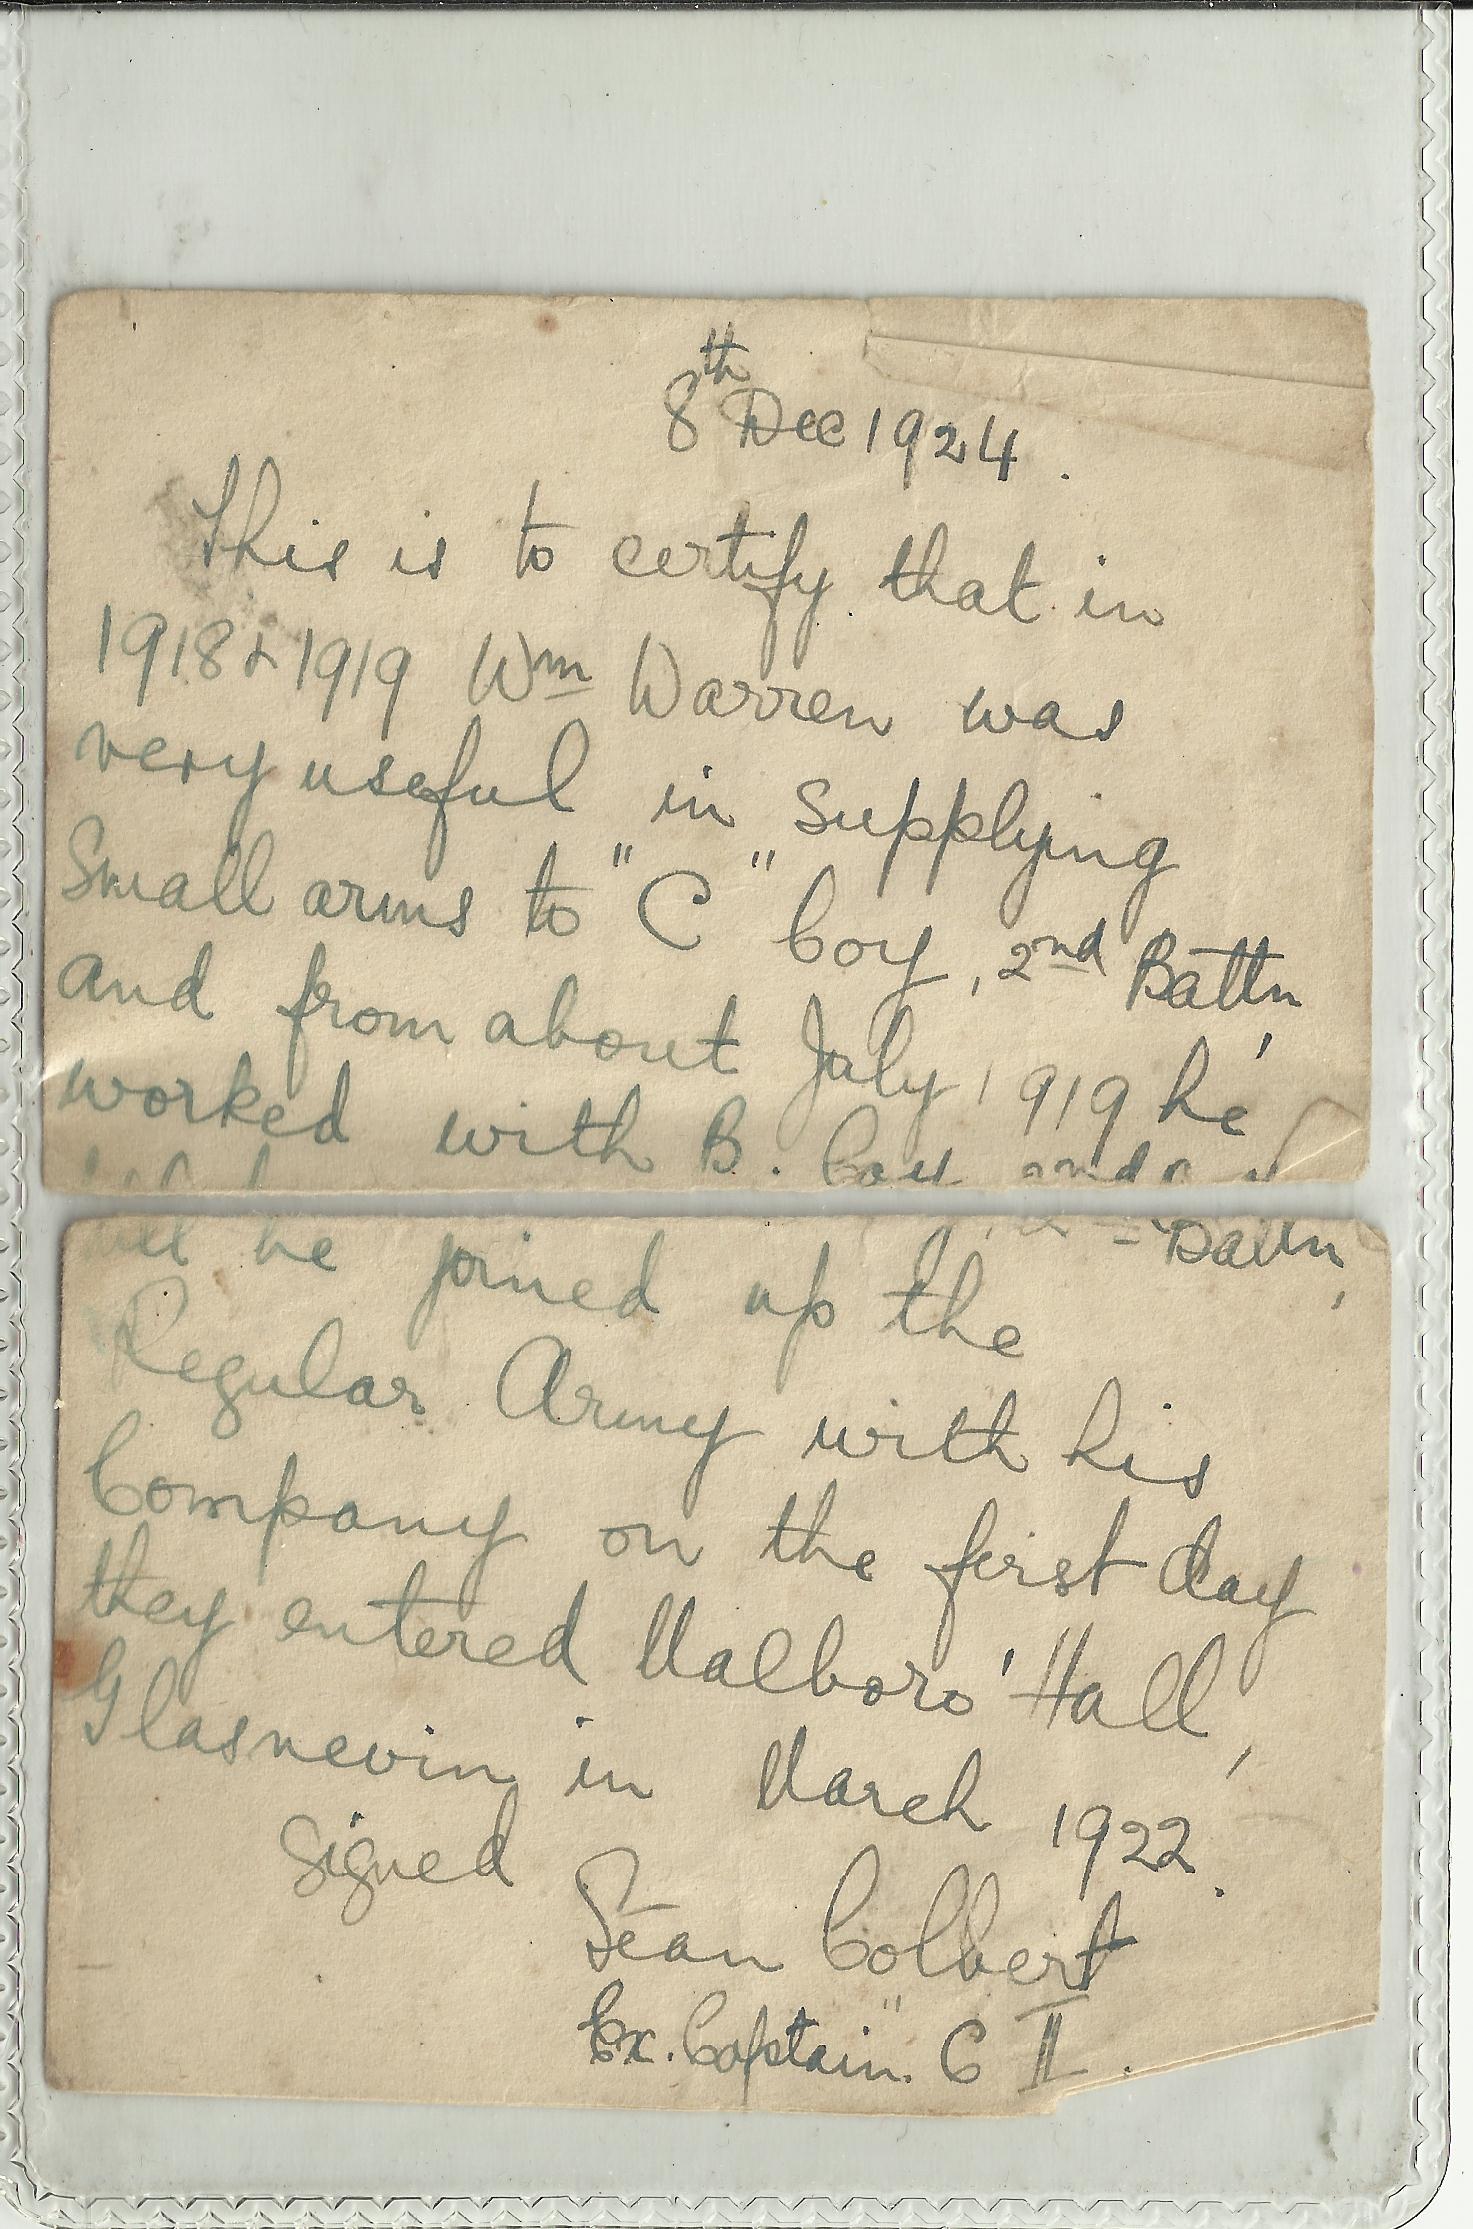 8th Dec 1924.
This is to certify that in
1918 & 1919 Wm Warren was
very useful in supplying
Small arms to "C" Coy, 2nd Battn,
and from about July 1919 he
worked with B. Coy, 2nd Battn,
till he joined up the
Regular Army with his
Company on the first day
they entered Malboro' Hall,
Glasnevin in March 1922.
Signed
Séan Colbert
Ex. Captain "C II.